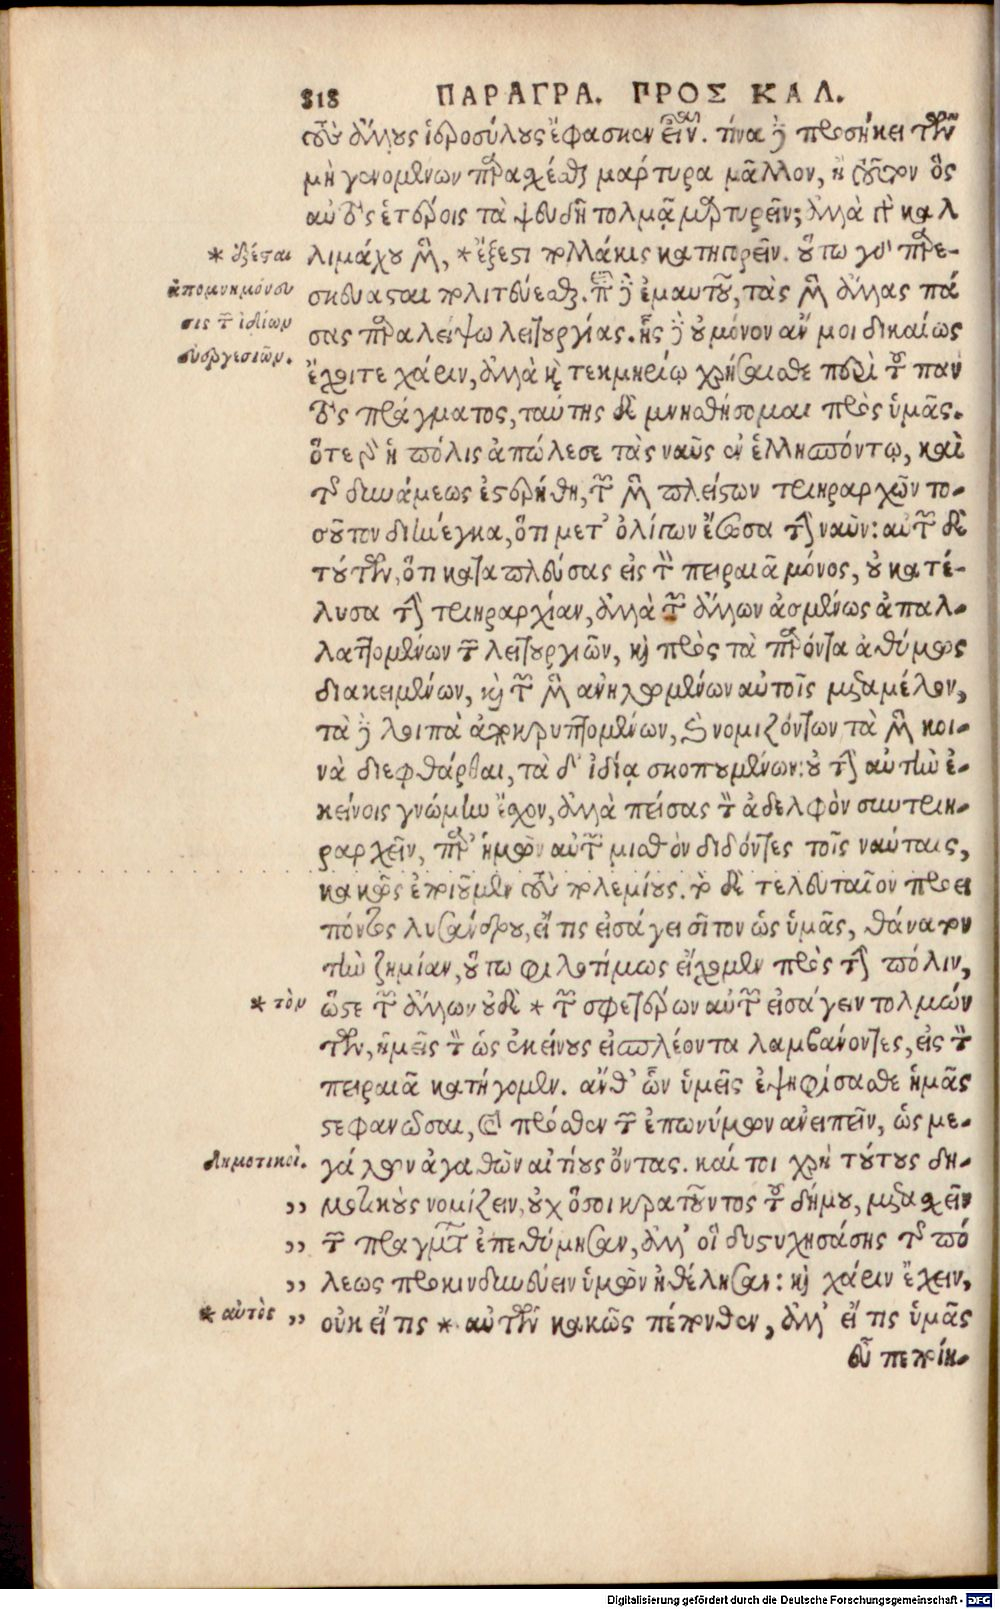 818 ΠΑΡΑΓΡΑ. ΠΡΟΣ ΚΑΛ.
τοὺς ἄλλους ἱεροσύλους ἔφασκεν εἶναι. τίνα δὲ προσήκει τῶν
μὴ γενομένων παραχέσθαι μάρτυρα μᾶλλον, ἢ τοῦτον ὃς
αὐτὸς ἑτέροις τὰ ψευδῆ τολμᾷ μαρτυρεῖν; ἀλλὰ γὰρ καλ
* ἐξέσται λιμάχου μὲν, * ἔξεστι πολλάκις κατηγορεῖν. οὕτω γὰρ παρε-
ἀπομνημόνευ σκεύασται πολιτεύεσθαι. περὶ δὲ ἐμαυτοῦ, τὰς μὲν ἄλλας πά
σις τῶν ἰδίων σας παραλείψω λειτουργίας. ἧς δὲ οὐ μόνον ἄν μοι δικαίως
εὐεργεσιῶν. ἔχοιτε χάριν, ἀλλὰ καὶ τεκμηρίῳ χρήσαισθε περὶ τοῦ παν
τὸς πράγματος, ταύτης δὲ μνησθήσομαι πρὸς ὑμᾶς.
ὅτε γὰρ ἡ πόλις ἀπώλεσε τὰς ναῦς ἐν ἑλλησπόντῳ, καὶ
τῆς δυνάμεως ἐστερήθη, τῶν μὲν πλείστων τριηραρχῶν το-
σοῦτον διήνεγκα, ὅτι μετ' ὀλίγων ἔσωσα τὴν ναῦν: αὐτῶν δὲ
τούτων, ὅτι καταπλεύσας εἰς τὸν πειραιᾶ μόνος, οὐ κατέ-
λυσα τὴν τριηραρχίαν, ἀλλὰ τῶν ἄλλων ἀσμένως ἀπαλ-
λαττομένων τῶν λειτουργιῶν, καὶ πρὸς τὰ παρόντα ἀθύμως
διακειμένων, καὶ τῶν μὲν ἀνηλωμένων αὐτοῖς μεταμέλον,
τὰ δὲ λοιπὰ ἀποκρυπτομένων, καὶ νομιζόντων τὰ μὲν κοι-
νὰ διεφθάρθαι, τὰ δ' ἰδίᾳ σκοπουμένων: οὐ τὴν αὐτὴν ἐ-
κείνοις γνώμην ἔχον, ἀλλὰ πείσας τὸν ἀδελφὸν συντριη-
ραρχεῖν, παρ' ἡμῶν αὐτῶν μισθὸν διδόντες τοῖς ναύταις,
κακῶς ἐποιοῦμεν τοὺς πολεμίους. τὸ δὲ τελευταῖον προει
πόντος λυσάνδρου, εἴ τις εἰσάγει σῖτον ὡς ὑμᾶς, θάνατον
τὴν ζημίαν, οὕτω φιλοτίμως εἴχομεν πρὸς τὴν πόλιν,
* τὸν ὥστε τῶν ἄλλων οὐδὲ * τῶν σφετέρων αὐτῶν εἰσάγειν τολμών
των, ἡμεῖς τὸν ὡς ἐκείνους εἰσπλέοντα λαμβάνοντες, εἰς τὸν
πειραιᾶ κατήγομεν. ἀνθ' ὧν ὑμεῖς ἐψηφίσασθε ἡμᾶς
στεφανῶσαι, καὶ πρόσθεν τῶν ἐπωνύμων ἀνειπεῖν, ὡς με-
δημοτικοί. γάλων ἀγαθῶν αἰτίους ὄντας. καίτοι χρὴ τούτους δη-
,, μοτικοὺς νομίζειν, οὐχ ὅσοι κρατοῦντος τοῦ δήμου, μετασχεῖν
,, τῶν πραγμάτων ἐπεθύμησαν, ἀλλ' οἳ δυστυχησάσης τῆς πό
,, λεως προκινδυνεύειν ὑμῶν ἠθέλησαν: καὶ χάριν ἔχειν,
* αὐτὸς ,, οὐκ εἴ τις * αὐτῶν κακῶς πέπονθεν, ἀλλ' εἴ τις ὑμᾶς
εὖ πεποίη-
Digitalisierung gefördert durch die Deutsche Forschungsgemeinschaft - DFG